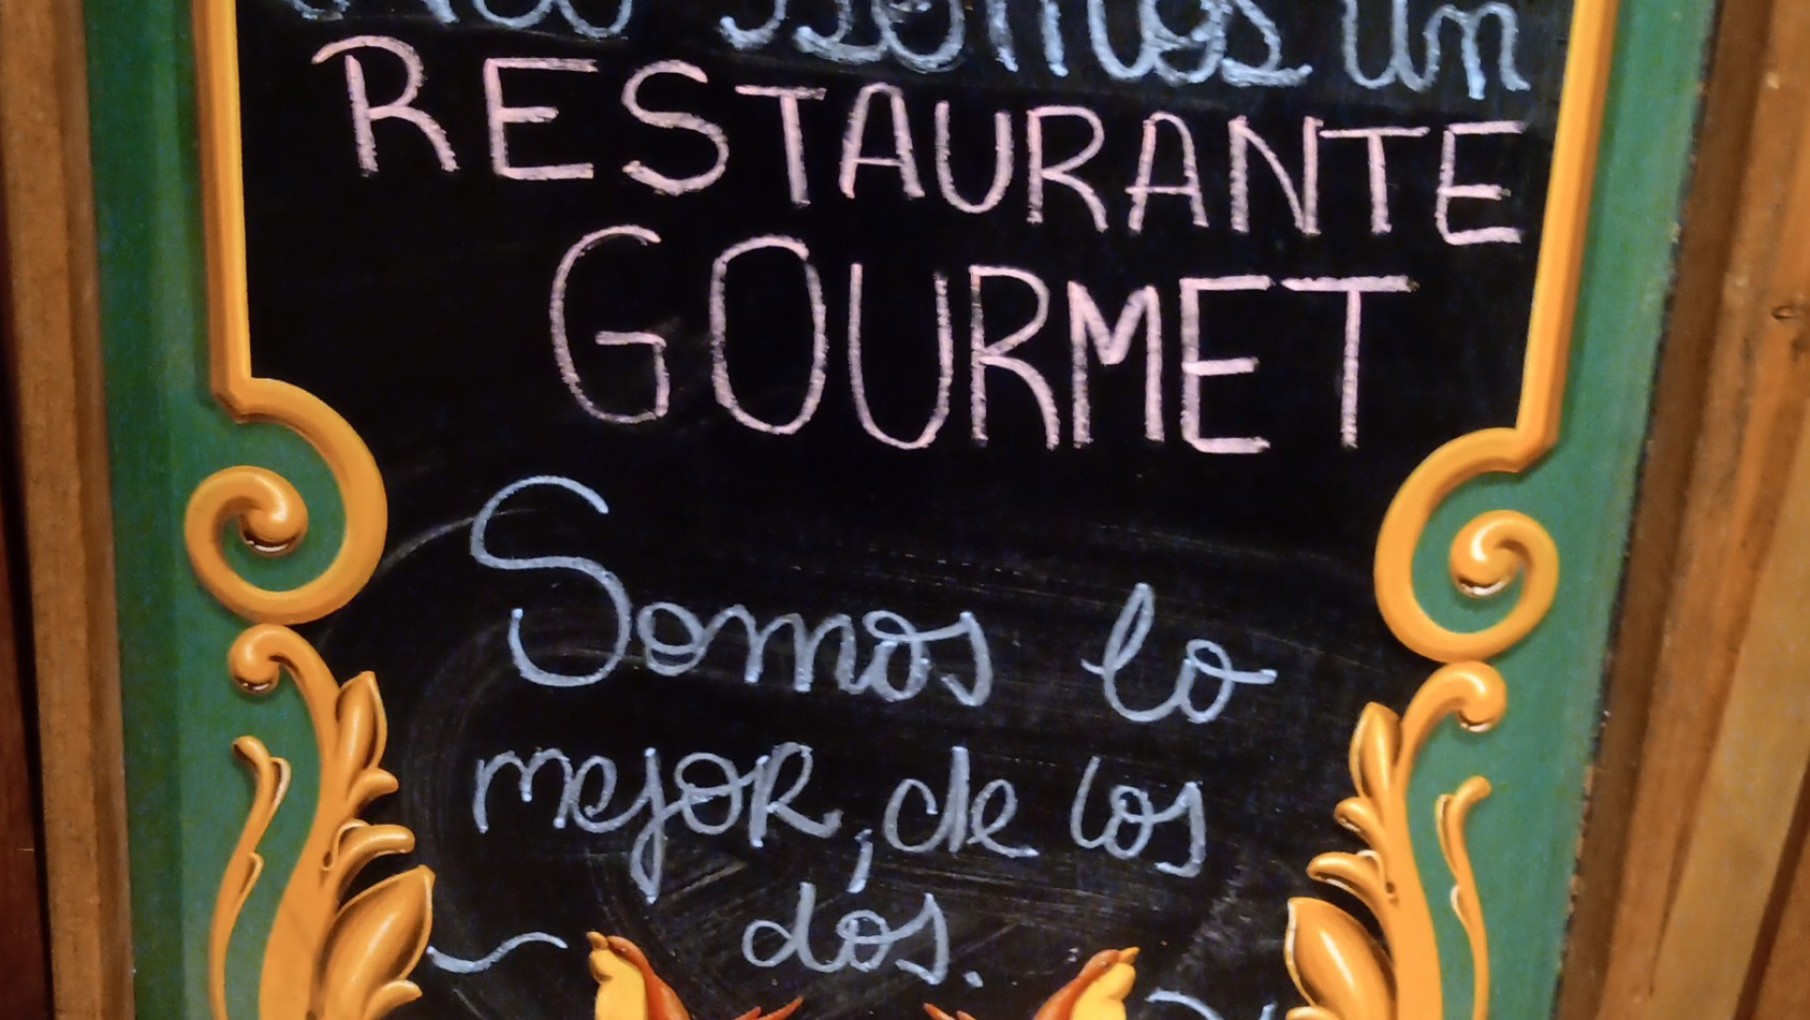 somos un
RESTAURANTE
GOURMET
Somos lo
mejor, de los
dos.